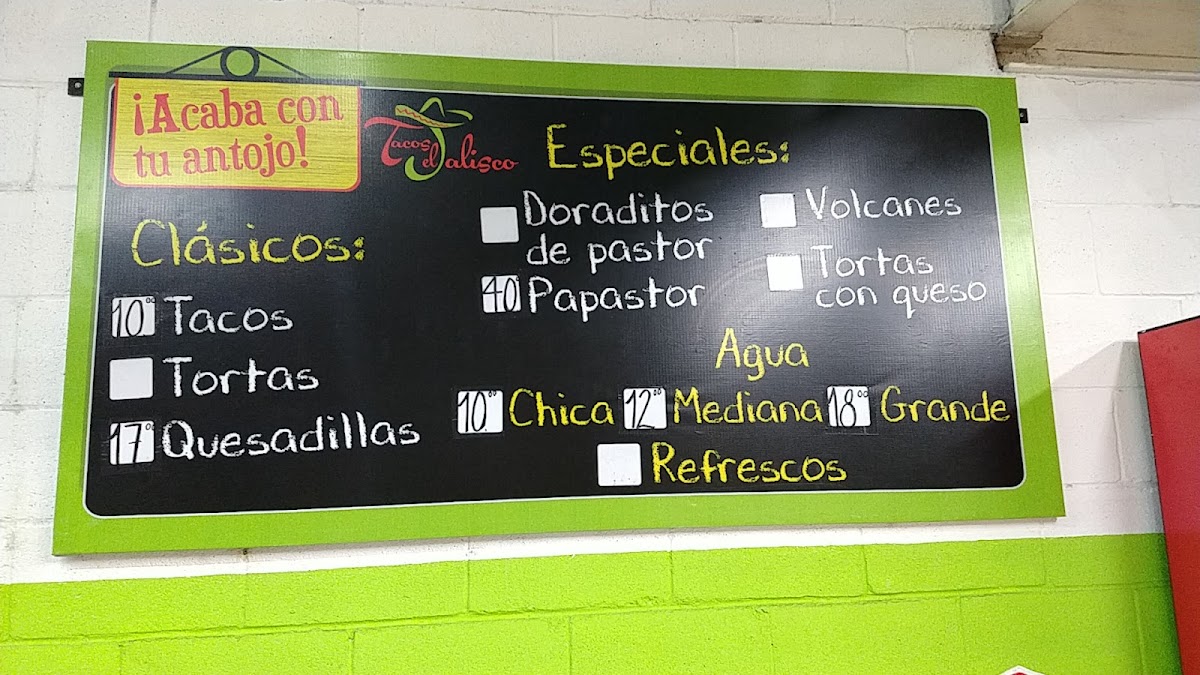 ¡Acaba con
tu antojo!
Tacos Jalisco
Clásicos:
10⁰⁰ Tacos
Tortas
17⁰⁰ Quesadillas
Especiales:
Doraditos
de pastor
40 Papastor
Volcanes
Tortas
con queso
Agua
10⁰⁰ Chica 12⁰⁰ Mediana 18⁰⁰ Grande
Refrescos